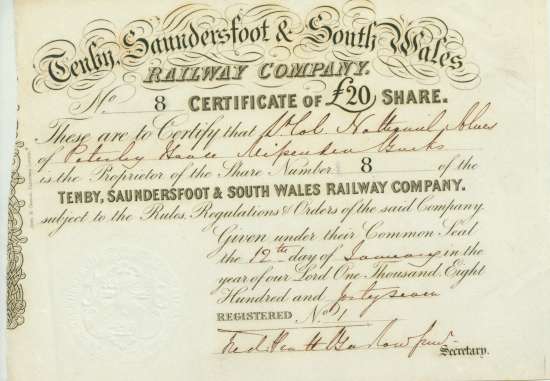 Tenby, Saundersfoot & South Wales
RAILWAY COMPANY.
No 8 CERTIFICATE OF £20 SHARE.
These are to Certify that Lt Col Nathaniel
of Peterley House Missenden Bucks
is the Proprietor of the Share Number 8 of the
TENBY, SAUNDERSFOOT & SOUTH WALES RAILWAY COMPANY.
subject to the Rules, Regulations & Orders of the said Company.
Given under their Common Seal
the 12th day of January in the
year of our Lord One Thousand Eight
Hundred and forty seven
REGISTERED No 1
Secretary.